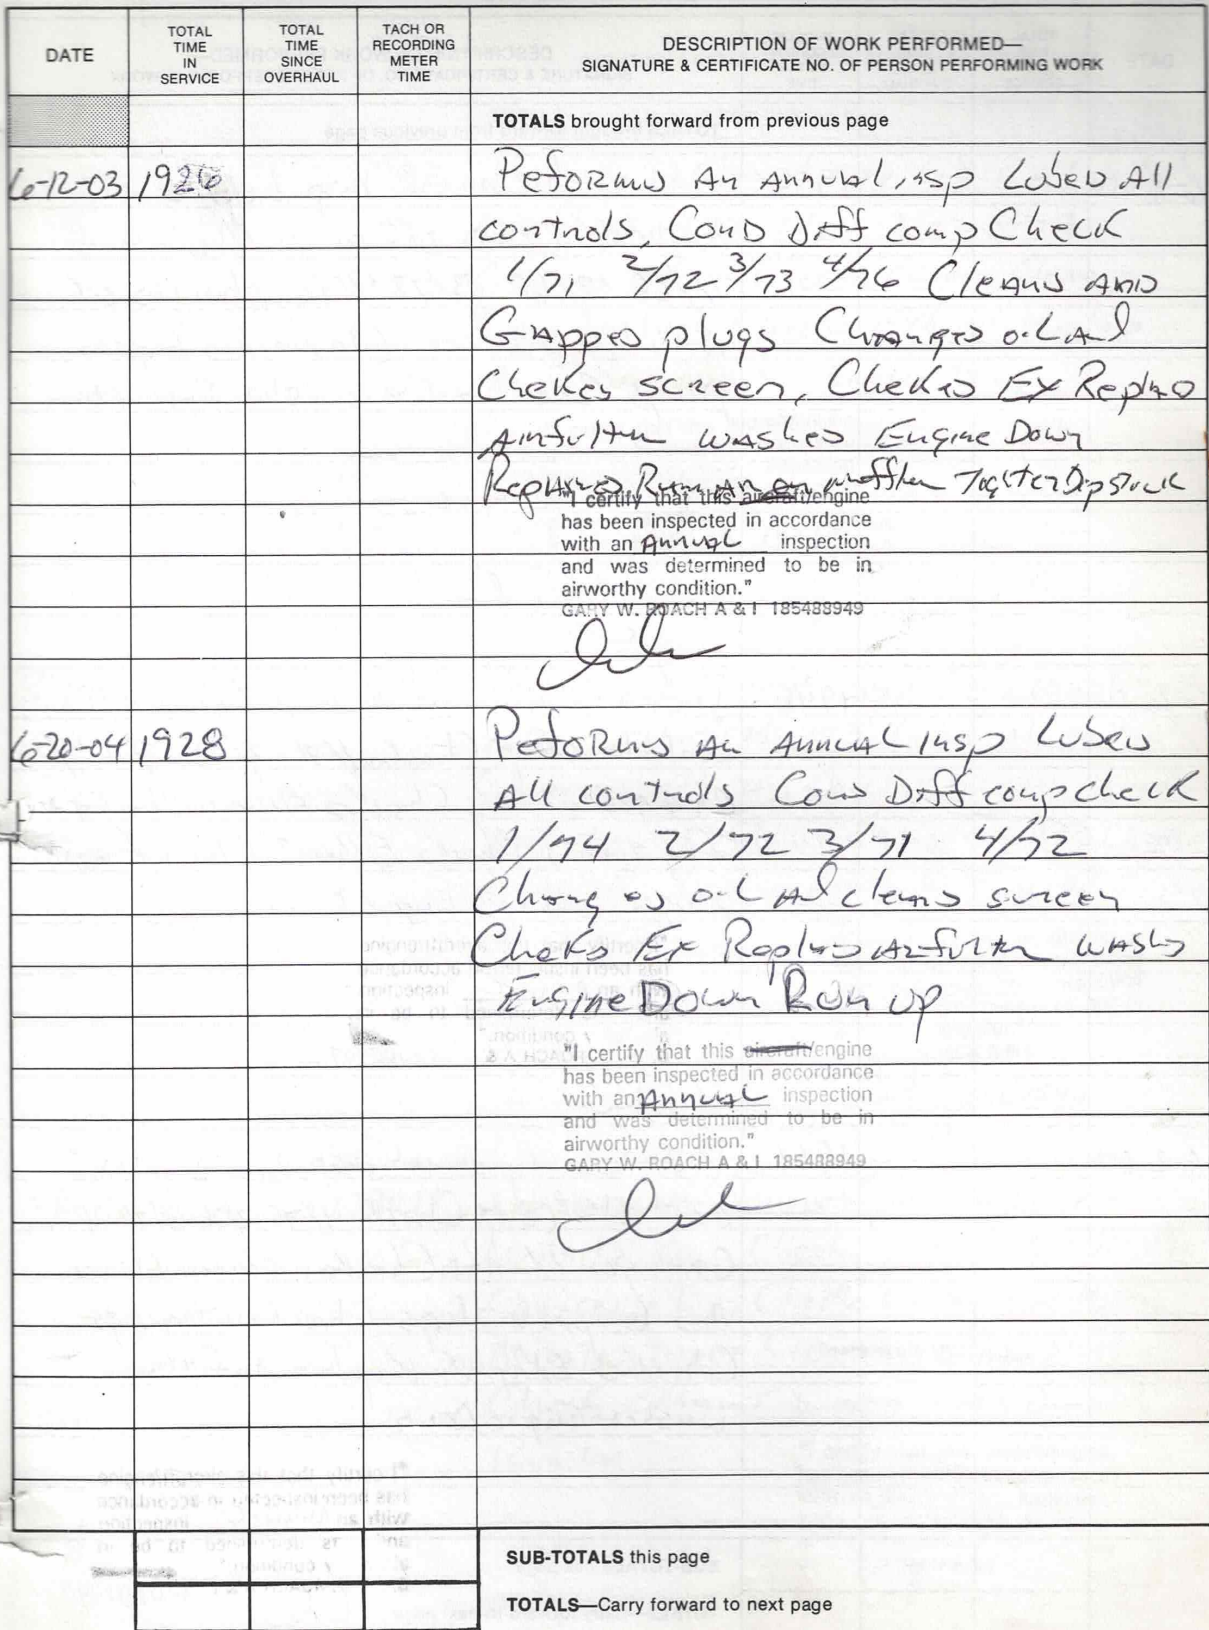 DATE
TOTAL TIME IN SERVICE
TOTAL TIME SINCE OVERHAUL
TACH OR RECORDING METER TIME
DESCRIPTION OF WORK PERFORMED—
SIGNATURE & CERTIFICATE NO. OF PERSON PERFORMING WORK
TOTALS brought forward from previous page
6-12-03 1926 Peformed An Annual insp Lubed All
controls, Cond Diff comp Check
1/71 2/72 3/73 4/76 Cleaned And
Gapped plugs Changed oil And
Cheked screen, Cheked Ex Replaced
Airfilter washed Engine Down
Replaced
"I certify that this aircraft/engine
has been inspected in accordance
with an Annual inspection
and was determined to be in
airworthy condition."
GARY W. ROACH A & I 185488949
6-20-04 1928 Peformed An Annual insp Lubed
All controls Cond Diff comp check
1/74 2/72 3/71 4/72
Changed oil And cleaned screen
Cheked Ex Replaced Airfilter washed
Engine Down Run up
"I certify that this aircraft/engine
has been inspected in accordance
with an Annual inspection
and was determined to be in
airworthy condition."
GARY W. ROACH A & I 185488949
SUB-TOTALS this page
TOTALS—Carry forward to next page